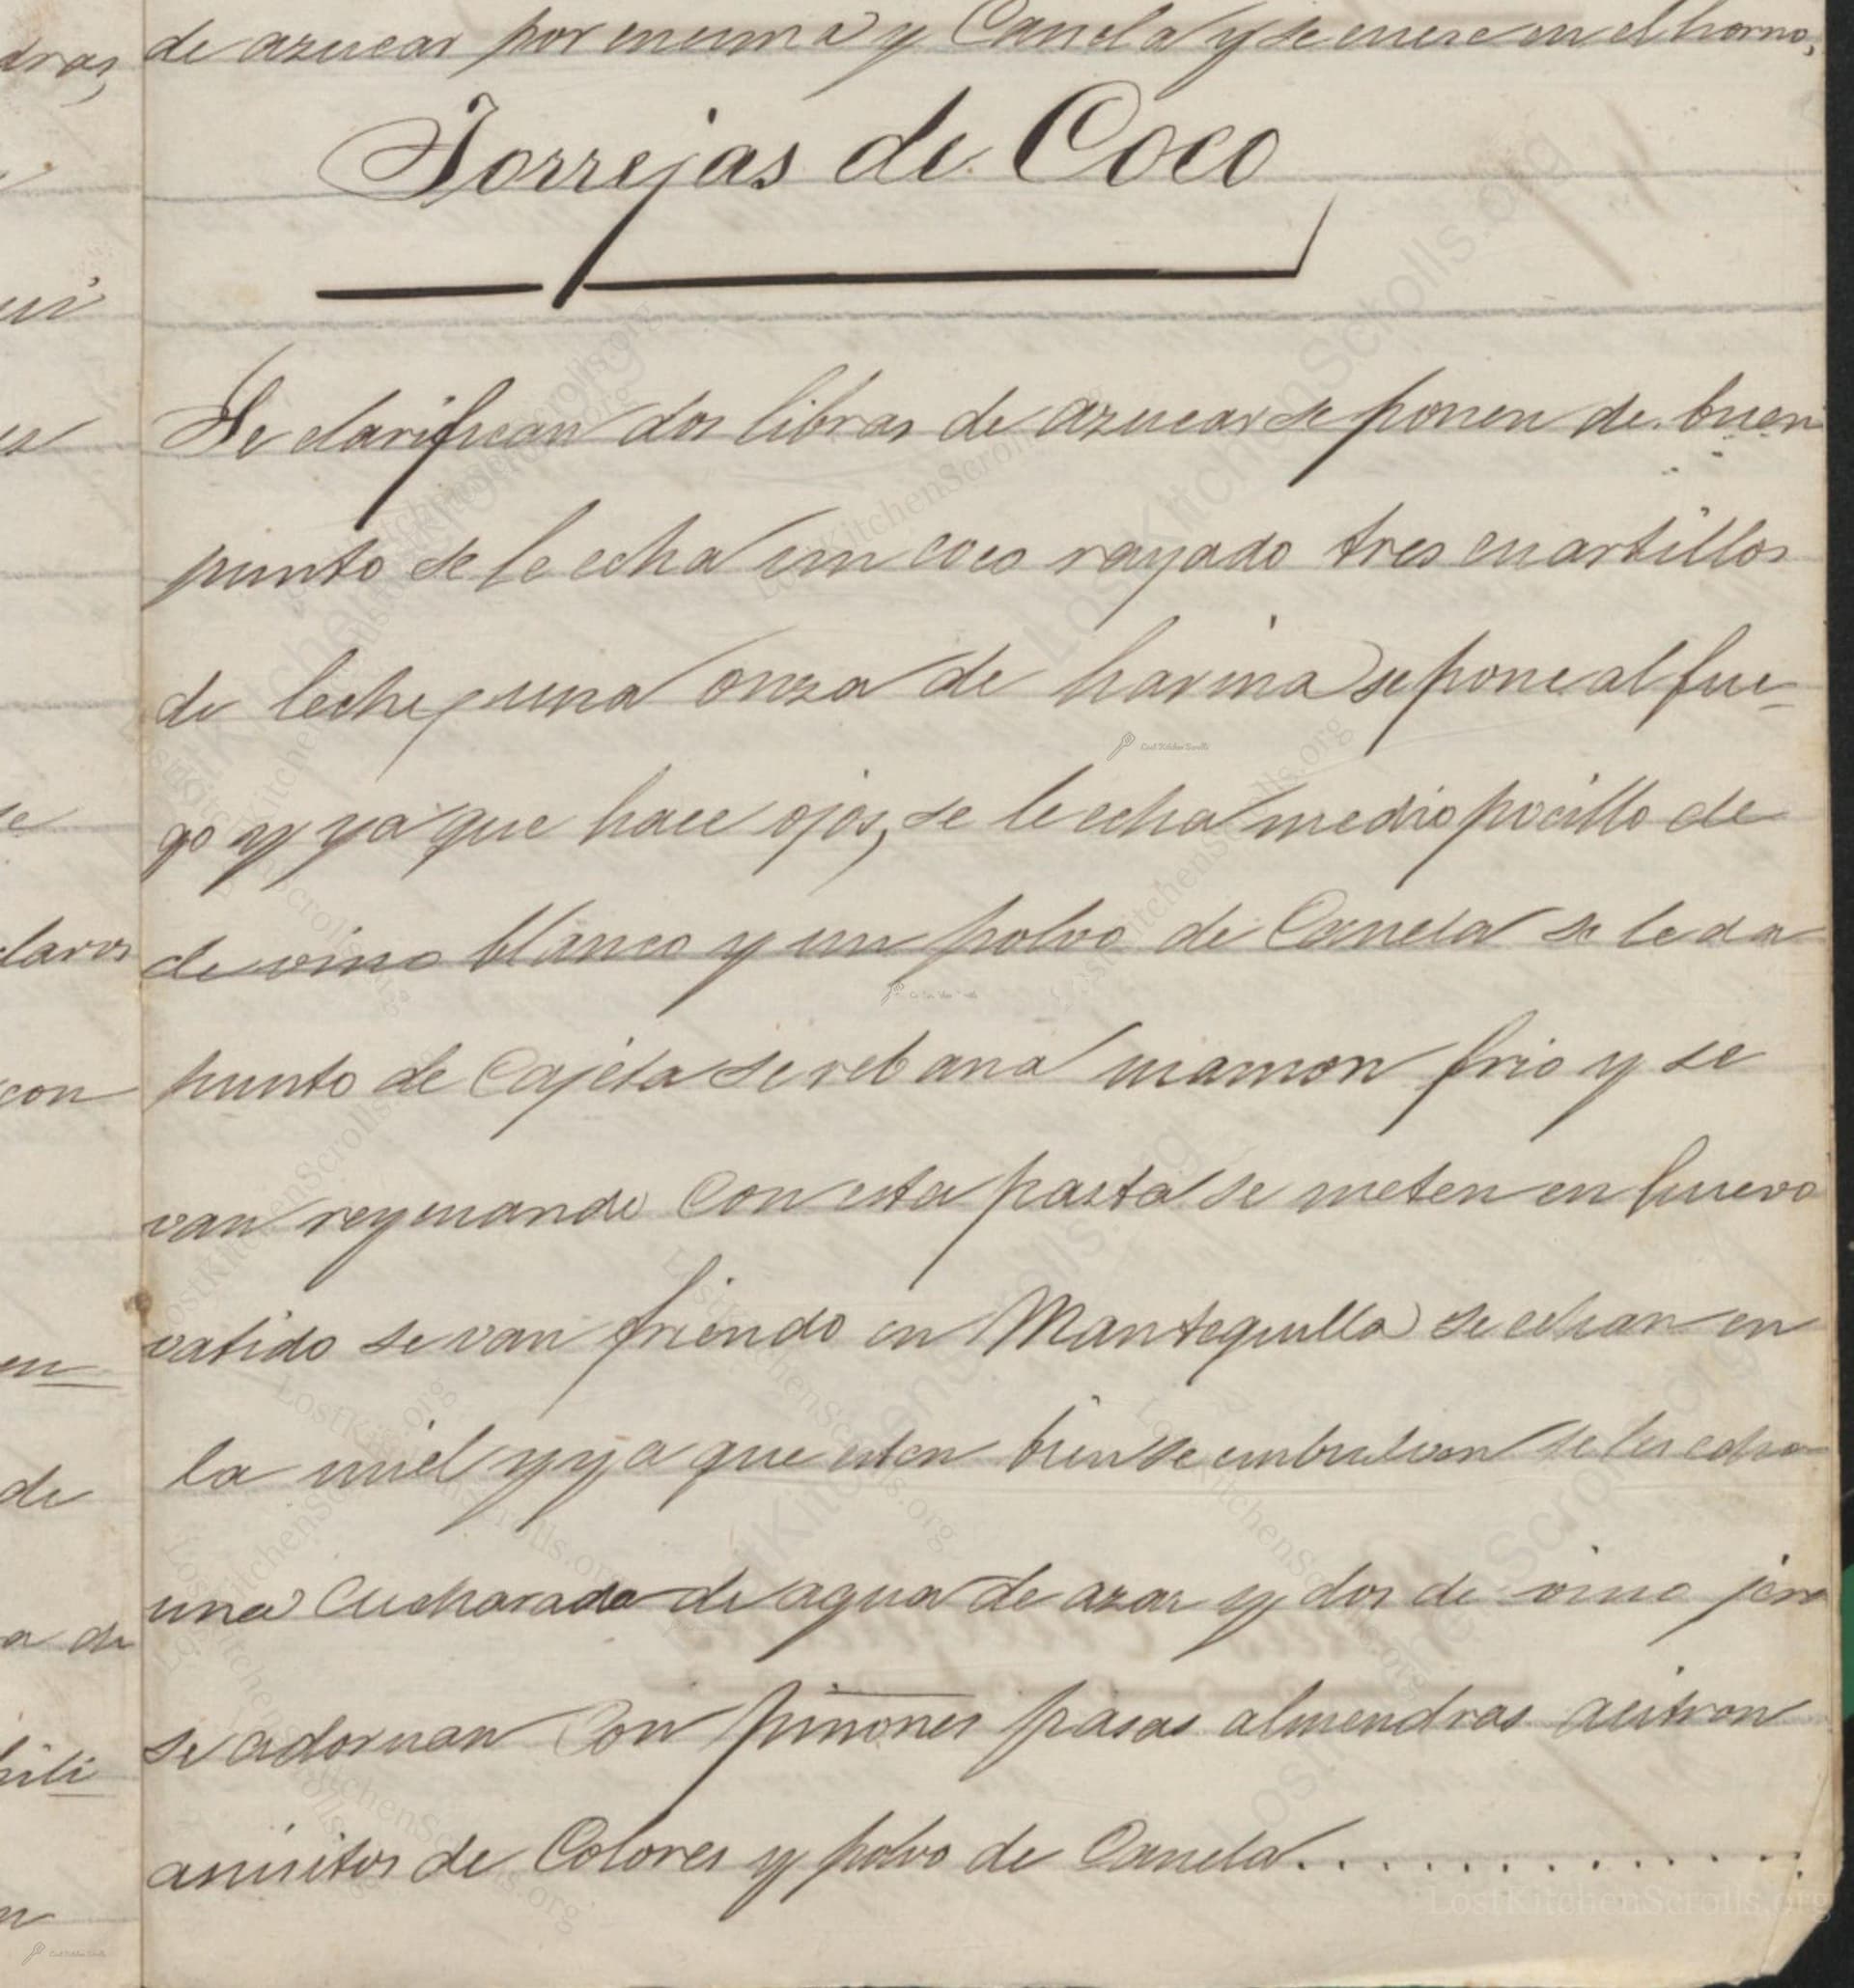 de azucar por encima y Canela y se cuese en el horno,
Torrejas de Coco
Se clarifican dos libras de azucar se ponen de buen
punto se le echa un coco rayado tres cuartillos
de leche, una onza de harina se pone al fue-
go y ya que hace ojos, se le echa medio pocillo de
de vino blanco y un polvo de Canela se le da
punto de Cajeta se rebana mamon frio y se
van reyenando Con esta pasta se meten en huevo
vatido se van friendo en Mantequilla se echan en
la miel y ya que esten bien se embuelven se les echa
una Cucharada de agua de azar y dos de vino jere
se adornan Con piñones pasas almendras acitron
anisitos de Colores y polvo de Canela..............
dras,
es
se
claros
con
en
de
a de
n
LostKitchenScrolls.org